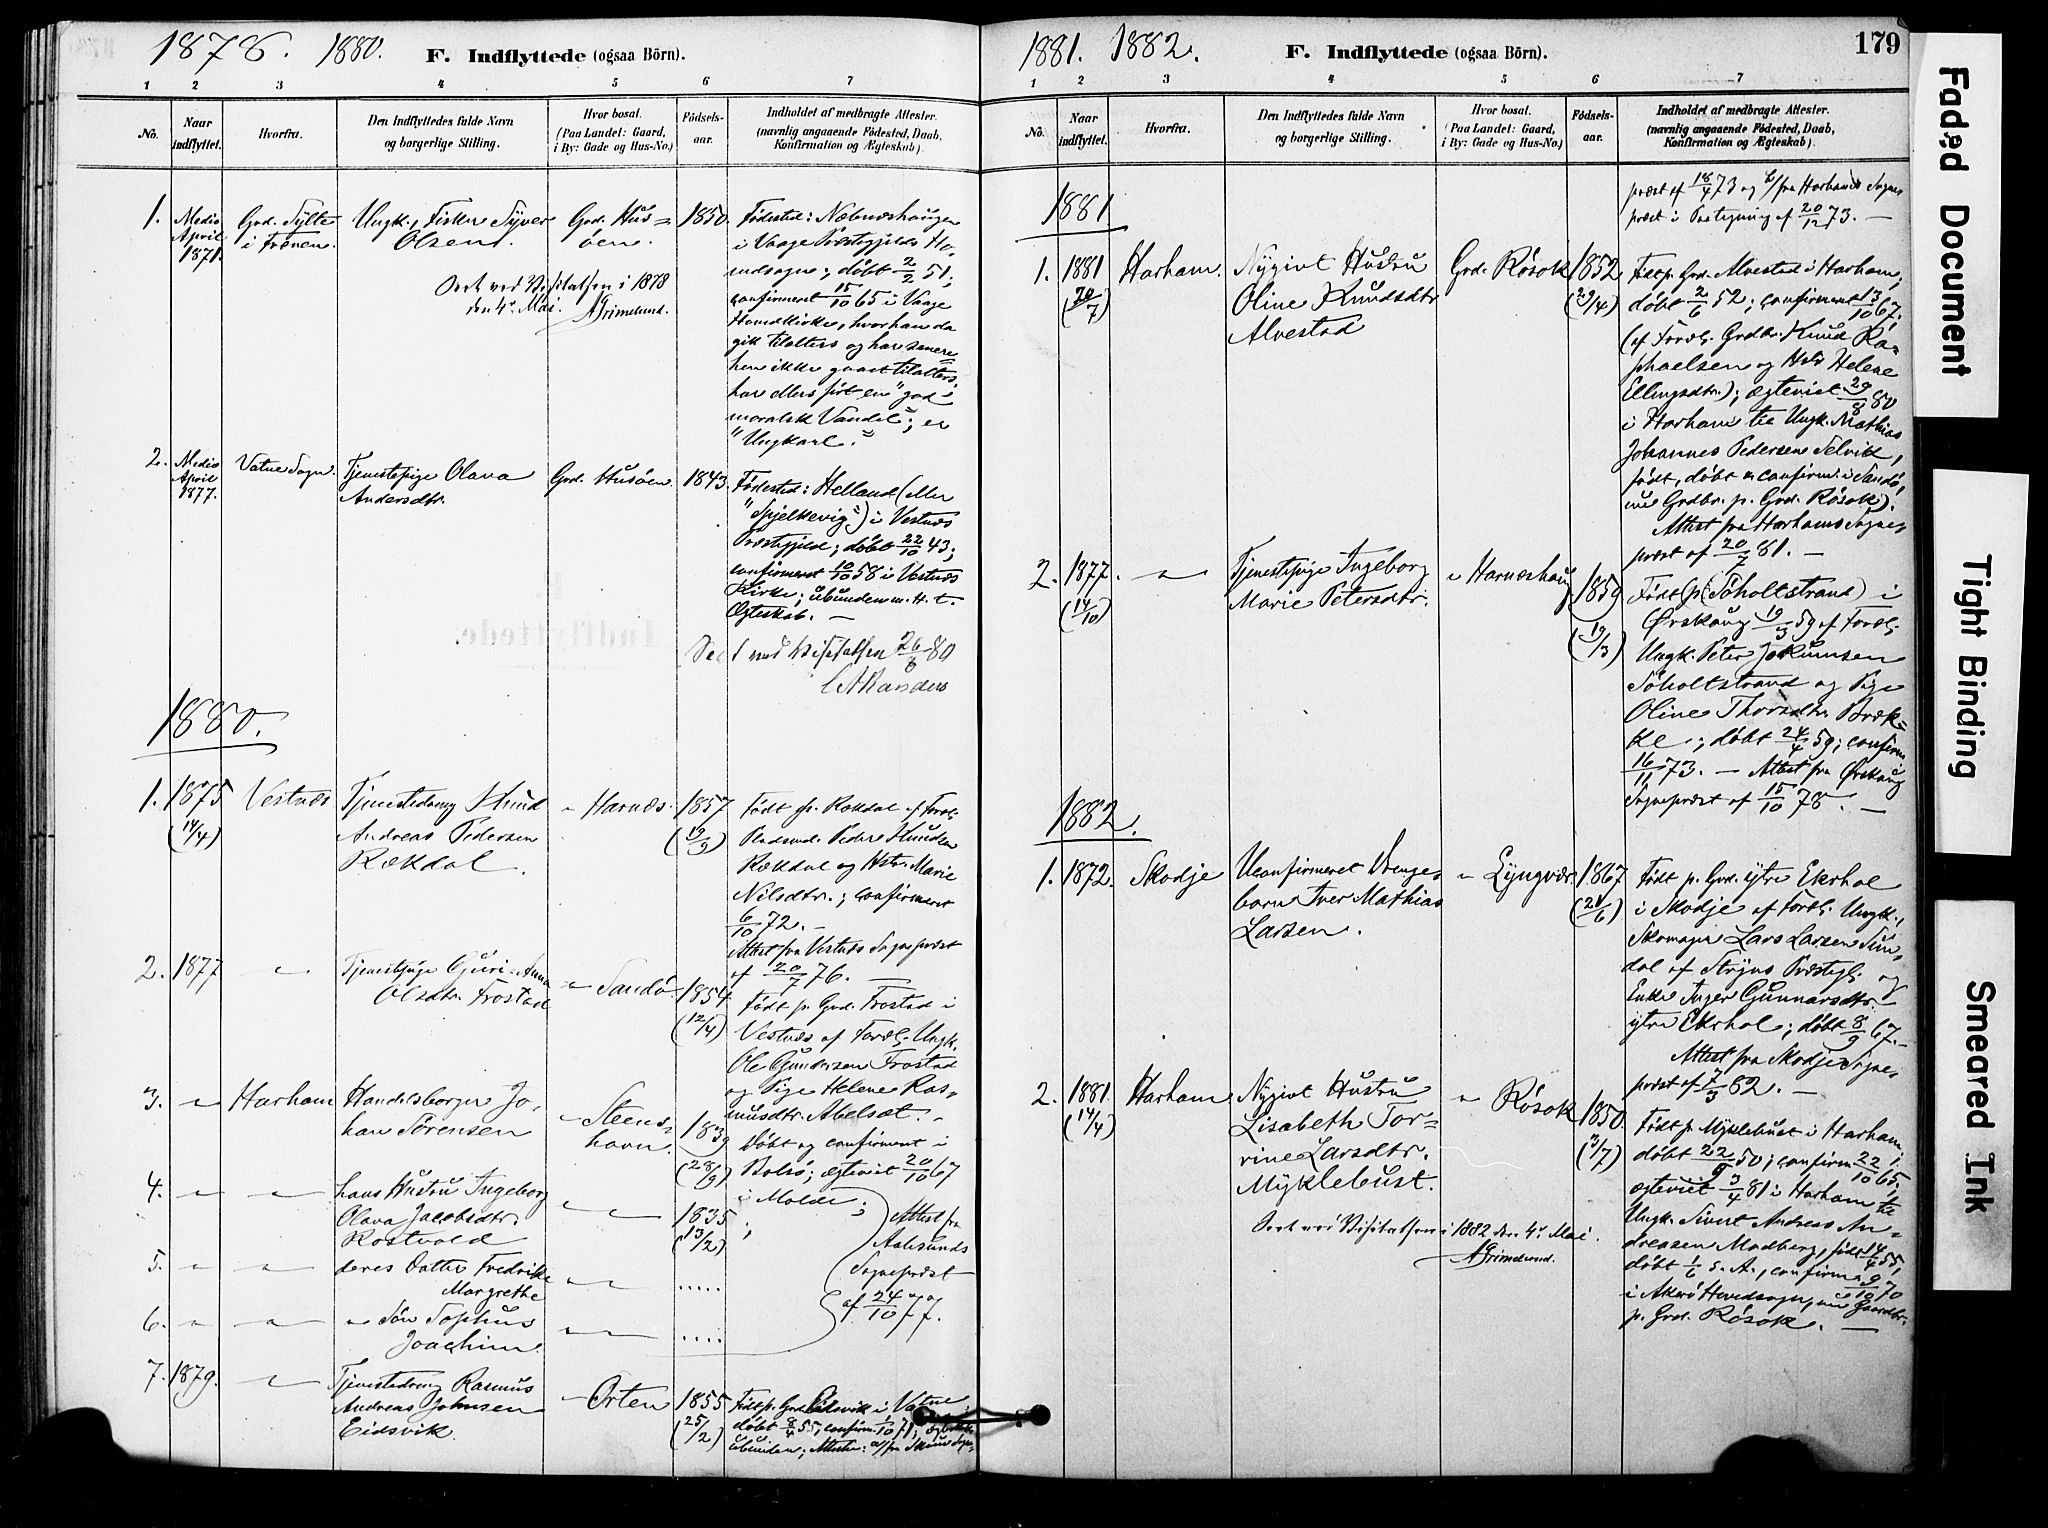 1878. 1880.
F. Indflyttede (ogsaa Börn).
1 2 3 4 5 6 7
No.
Naar indflyttet.
Hvorfra.
Den Indflyttedes fulde Navn
og borgerlige Stilling.
Hvor bosat.
(Paa Landet: Gaard,
i By: Gade og Hus-No.)
Födsels-
aar.
Indholdet af medbragte Attester.
(navnlig angaaende Födested, Daab,
Konfirmation og Ægteskab).
1. Medio April 1871. Grd. Sylte i Frænen. Ungk., Fisker Syver Olsen. Grd. Hus=öen. 1850.
Födested: Næbneshaugen
i Vaage Præstegjelds Ho-
vedsogn; döbt 2/2 51;
confirmeret 15/10 65 i Vaage
Hovedkirke, hvor han da
gik tilalters og har senere
hen ikke gaaet tilalters,
har ellers fört en "god
moralsk Vandel"; er
"Ungkarl."
Seet ved Visitatsen i 1878
den 4. Mai. AGrimelund.
2. Medio April 1877. Vatne Sogn. Tjenestepige Olava Andersdtr. Grd. Husöen. 1843.
Födested: Helland (eller
"Spjelkevig") i Vestnæs
Præstegjeld; döbt 22/10 43;
confirmeret 10/10 58 i Vestnæs
Kirke; ubunden m. H. t.
Ægteskab. —
Seet ved Visitatsen 26/8 80
1880.
1. 1875 (14/4) Vestnæs Tjenestedreng Knud Andreas Pedersen Rækdal. " Harnæs. 1857 (19/9)
Födt p. Rækdal af Foræl.
Peder Knudsen
Rækdal og Hstr. Marie
Nilsdtr.; confirmeret
6/10 72. —
Attest fra Vestnæs Sognepræst
af 20/7 76. —
2. 1877 " Tjenestepige Guri Anna Olsdtr. Frostad " Sandö 1854 (12/4)
Födt p. Grd. Frostad i
Vestnæs af Foræl. Ungk.
Ole Gundersen Frostad
og Pige Helene Ras-
musdtr. Abelsæt. —
3. " Harham Handelsborger Jo-
han Sörensen " Steens-
havn. 1839 (28/9)
Döbt og confirmert i
Bolsö; ægteviet 20/10 67
i Molde;
4. " " hans Hustru Ingeborg
Olava Jacobsdtr.
Rostvold " " 1835 (13/2) ;
Attest fra
Aalesunds
Sognepræst
af 24/10 77.
5. " " deres Datter Fredrikke
Margrethe " " .....
6. " " " Sön Sophus
Joachim. " " ....
7. 1879. " Tjenestedreng Rasmus
Andreas Johnsen
Eidsvik. " Orten 1855 (25/2)
Födt p. Grd. Eidsvik i Vatne
döbt 8/4 55; confirm. 1/10 71;
ubunden; Attester:
1881. 1882.
F. Indflyttede (ogsaa Börn).
179
1 2 3 4 5 6 7
No.
Naar indflyttet.
Hvorfra.
Den Indflyttedes fulde Navn
og borgerlige Stilling.
Hvor bosat.
(Paa Landet: Gaard,
i By: Gade og Hus-No.)
Födsels-
aar.
Indholdet af medbragte Attester.
(navnlig angaaende Födested, Daab,
Konfirmation og Ægteskab).
præst af 18/4 73 og b/ fra Harhams Sogne-
præst i Paategning af 20/12 73. —
1881
1. 1881 (20/7) Harham. Nygivt Hustru
Oline Knudsdtr.
Alvestad Grd. Rösok 1852 (29/4)
Födt p. Grd. Alvestad i Harham;
döbt 2/6 52; confirmert 13/10 67.
(af Foræl. Grdbr. Knud Ra-
phaelsen og Hstr Helene
Ellingsdtr.); ægteviet 29/8 80
i Harham til Ungk. Mathias
Johannes Pedersen Selvik,
födt, döbt & confirm. i Sandö,
nu Grdbr. p. Grd. Rösok).
Attest fra Harhams Sogne-
præst af 20/7 81. —
2. 1877. (14/10) " Tjenestepige Ingeborg
Marie Petersdtr. " Harnæshaug 1859 (19/3)
Födt p. (Söholtstrand) i
Örskaug 19/3 59 af Foræl.
Ungk. Peter Jokumsen
Söholtstrand og Pige
Oline Thorsdtr. Bræk-
ke; döbt 24/4 59; confirm.
16/11 73. — Attest fra Örskaug
Sognepræst af 15/10 78. —
1882.
1. 1872. Skodje Uconfirmeret Drenge-
barn Iver Mathias
Larsen. " Lyngvær 1867 (21/6)
Födt p. Grd. ytre Ekrhol
i Skodje af Foræl. Ungk.,
Skomager Lars Larsen Sun-
dal af Stryns Præstegj. og
Enke Inger Gunnarsdtr.
ytre Ekrhol; döbt 8/9 67. —
Attest fra Skodje Sogne-
præst af 7/3 82. —
2. 1881. (14/4) Harham Nygivt Hustru
Lisabeth Tor=
rine Larsdtr.
Myklebust. " Rösok 1850. (3/7)
Födt p. Myklebust i Harham;
döbt 22/9 50; confirm. 22/10 65;
ægteviet 3/4 81 i Harham til
Ungk. Sivert Andreas An-
dreasen Madberg, födt 14/4 55,
döbt 1/6 s. A., confirm. 9/10 70
i Akerö Hovedsogn, nu Gaardbr.
p. Grd. Rösok. —
Seet ved Visitatsen i 1882 den 4. Mai.
AGrimelund.
Faded Document
Tight Binding
Smeared Ink